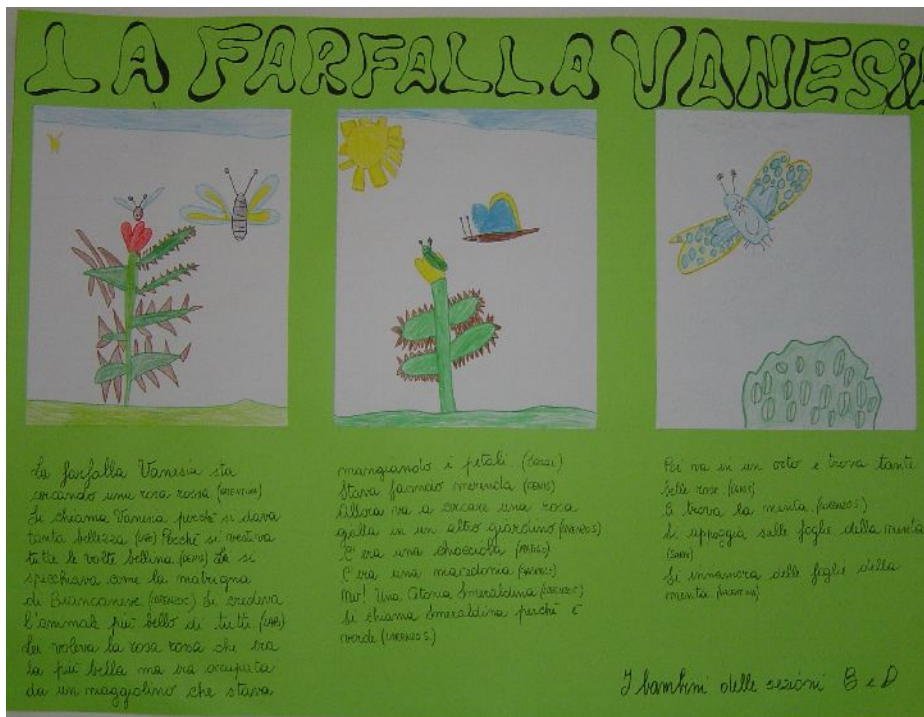 LA FARFALLA VANESIA
La farfalla Vanesia sta
cercando una rosa rossa (VALENTINA)
Si chiama Vanesia perché si dava
tanta bellezza Perché si vestiva
tutte le volte bellina (DENIS) Lei si
specchiava come la matrigna
di Biancaneve (LORENZO C.) Si credeva
l'animale più bello di tutti
Lei voleva la rosa rossa che era
la più bella ma era occupata
da un maggiolino che stava
mangiando i petali
Stava facendo merenda (DENIS)
Allora va a cercare una rosa
gialla in un altro giardino (LORENZO S.)
C'era una chiocciola
C'era una macedonia
No! Una Cetonia Smeraldina (LORENZO C.)
Si chiama Smeraldina perché è
verde (LORENZO S.)
Poi va in un orto e trova tante
belle rose (DENIS)
E trova la menta (LORENZO S.)
Si appoggia sulle foglie della menta
Si innamora delle foglie della
menta (VALENTINA)
I bambini delle sezioni B e D